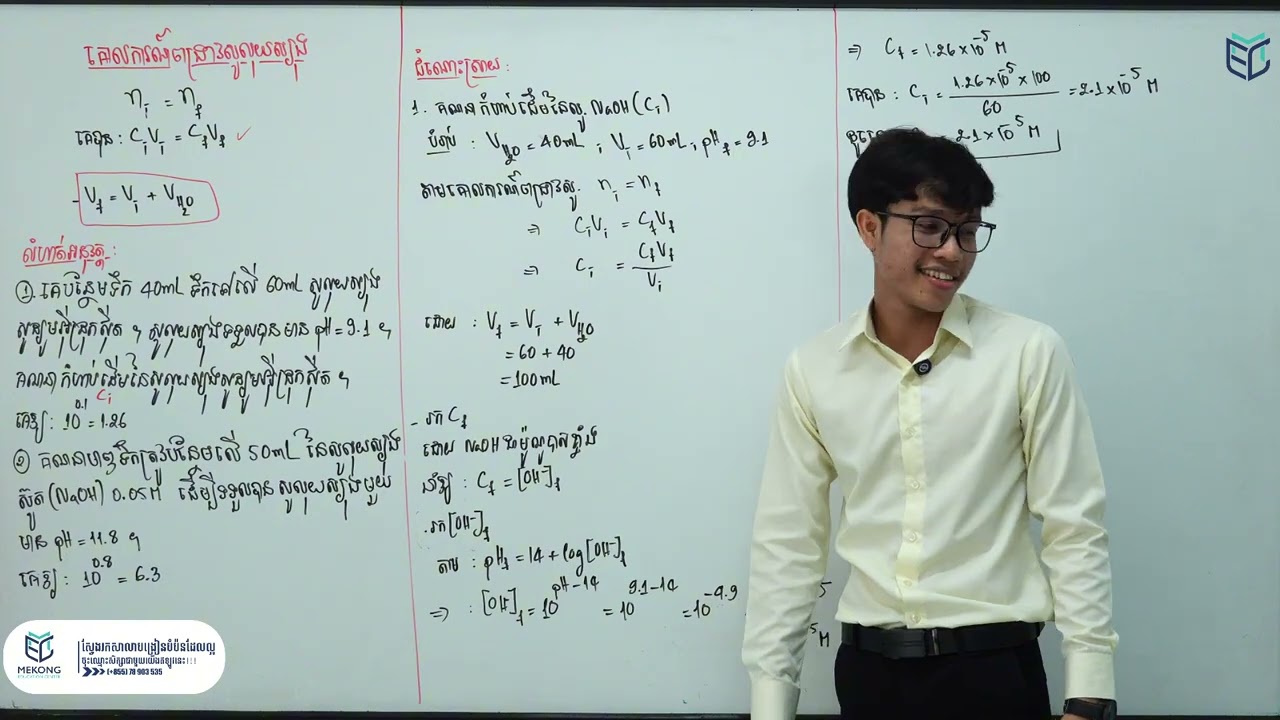 គោលការណ៍ពង្រាវសូលុយស្យុង
n_i = n_f
គេបាន: C_iV_i = C_fV_f ✓
- V_f = V_i + V_H₂O
លំហាត់អនុវត្ត:
① គេបន្ថែមទឹក 40mL ទឹកទៅលើ 60mL សូលុយស្យុង
សូដ្យូមអ៊ីដ្រុកស៊ីត ។ សូលុយស្យុងទទួលបានមាន pH = 9.1 ។
គណនាកំហាប់ដើមនៃសូលុយស្យុងសូដ្យូមអ៊ីដ្រុកស៊ីត ។
C_i
គេឱ្យ: 10^0.1 = 1.26
② គណនាមាឌទឹកត្រូវបន្ថែមលើ 50mL នៃសូលុយស្យុង
ស៊ូត (NaOH) 0.05M ដើម្បីទទួលបានសូលុយស្យុងមួយ
មាន pH = 11.8 ។
គេឱ្យ: 10^0.8 = 6.3
ដំណោះស្រាយ:
1. គណនាកំហាប់ដើមនៃសូ. NaOH (C_i)
បំរាប់ : V_H₂O = 40mL ; V_i = 60mL ; pH_f = 9.1
តាមគោលការណ៍ពង្រាវសូ. n_i = n_f
⇒ C_iV_i = C_fV_f
⇒ C_i = C_fV_f / V_i
ដោយ : V_f = V_i + V_H₂O
= 60 + 40
= 100mL
- រក C_f
ដោយ NaOH ជាម៉ូណូបាសខ្លាំង
នាំឱ្យ : C_f = [OH⁻]_f
. រក [OH⁻]_f
តាម : pH_f = 14 + log[OH⁻]_f
⇒ : [OH⁻]_f = 10^pH-14 = 10^9.1-14 = 10^-4.9
5
⁵M
⇒ C_f = 1.26 × 10^-5 M
គេបាន : C_i = 1.26 × 10^-5 × 100 / 60 = 2.1 × 10^-5 M
= 2.1 × 10^-5 M
MEKONG
EDUCATION CENTER
ស្វែងរកសាលាបង្រៀនបំប៉នដែលល្អ
ចុះឈ្មោះសិក្សាជាមួយយើងឥឡូវនេះ!!!
(+855) 78 903 535